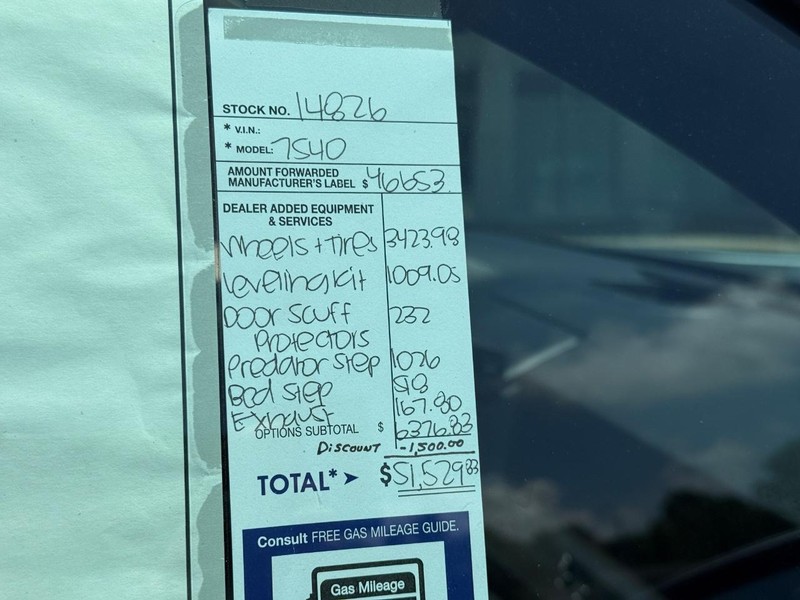 STOCK NO. 14826
* V.I.N.:
* MODEL: 7540
AMOUNT FORWARDED
MANUFACTURER'S LABEL $ 46653.
DEALER ADDED EQUIPMENT
& SERVICES
Wheels + Tires 3423.98
Leveling Kit 1009.05
Door Scuff 232
Protectors
Predator Step 1026
Bed Step 518
Exhaust 167.80
OPTIONS SUBTOTAL $ 6376.83
DISCOUNT -1,500.00
TOTAL* $51,529.83
Consult FREE GAS MILEAGE GUIDE.
Gas Mileage